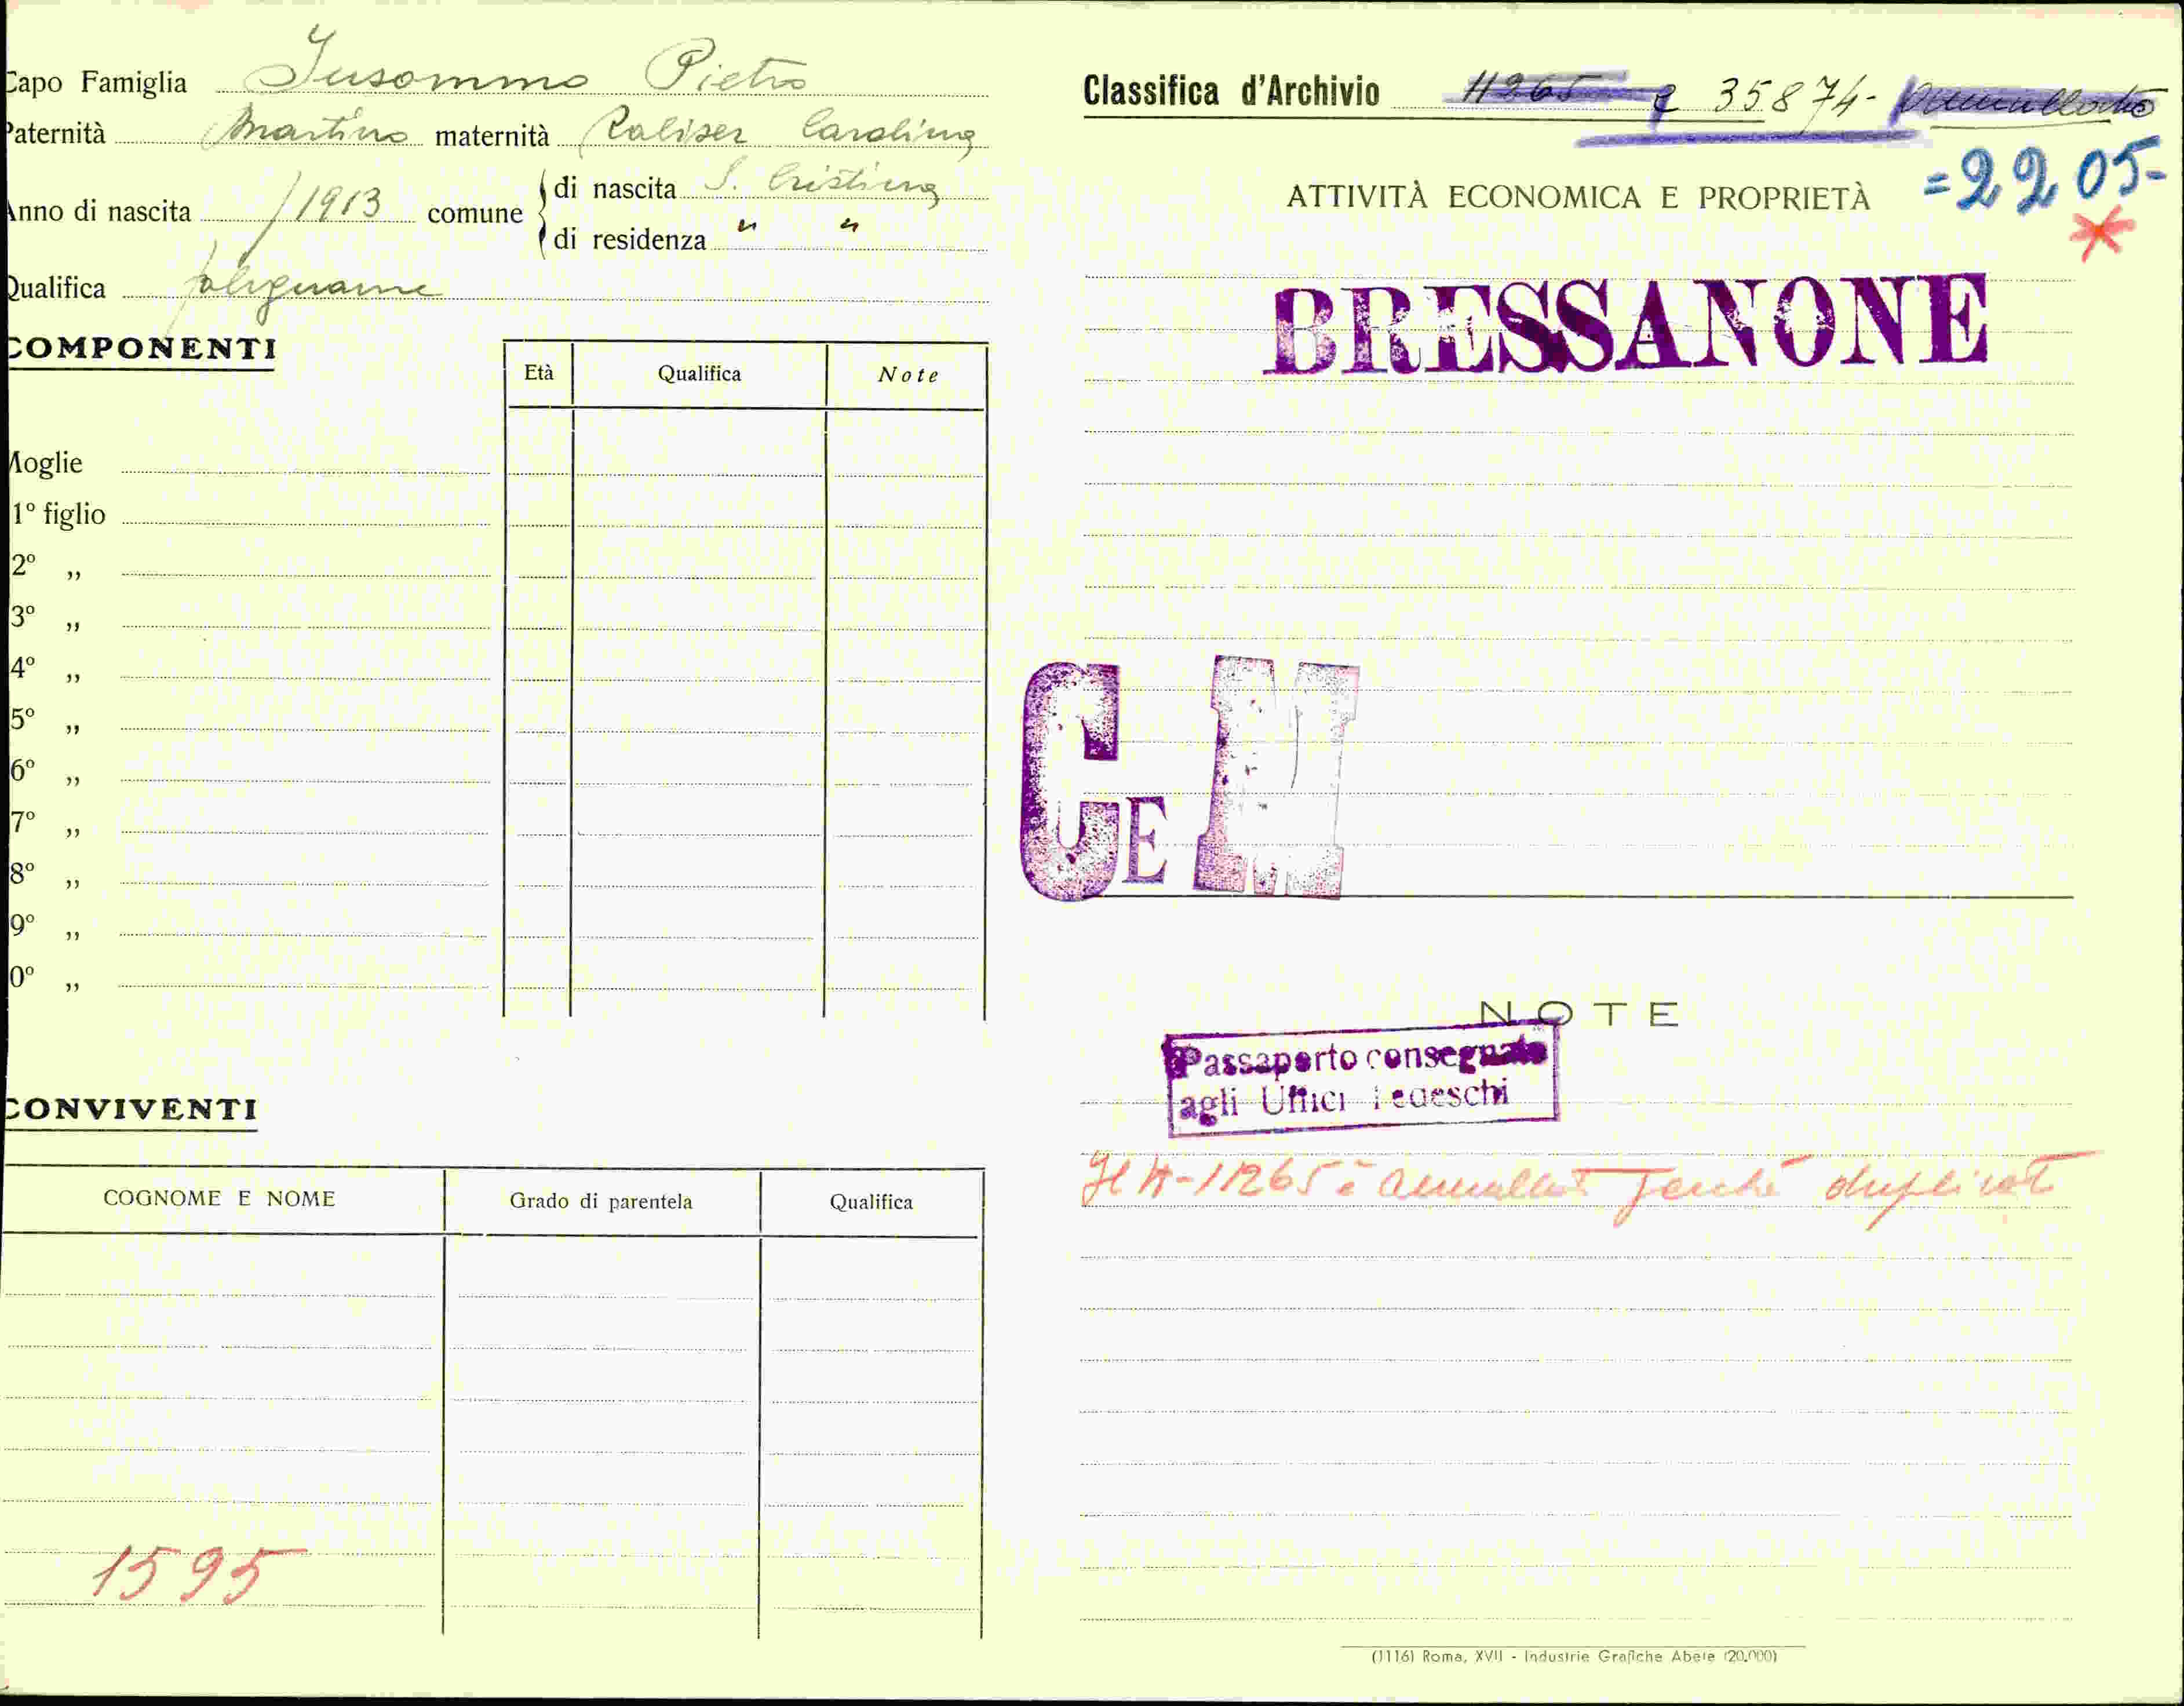 Capo Famiglia Insommo Pietro
Paternità Martino maternità Kaliser Carolina
Anno di nascita /1913 comune di nascita S. Cristina
di residenza " "
Qualifica falegname
COMPONENTI
Età Qualifica Note
Moglie
1º figlio
2º „
3º „
4º „
5º „
6º „
7º „
8º „
9º „
0º „
CONVIVENTI
COGNOME E NOME Grado di parentela Qualifica
1595
Classifica d'Archivio 11265 e 35874-
=2205-
ATTIVITÀ ECONOMICA E PROPRIETÀ
BRESSANONE
C E N
NOTE
Passaporto consegnato
agli Uffici Tedeschi
Il N-11265 è annullato perché duplicato
(1116) Roma, XVII - Industrie Grafiche Abete (20.000)